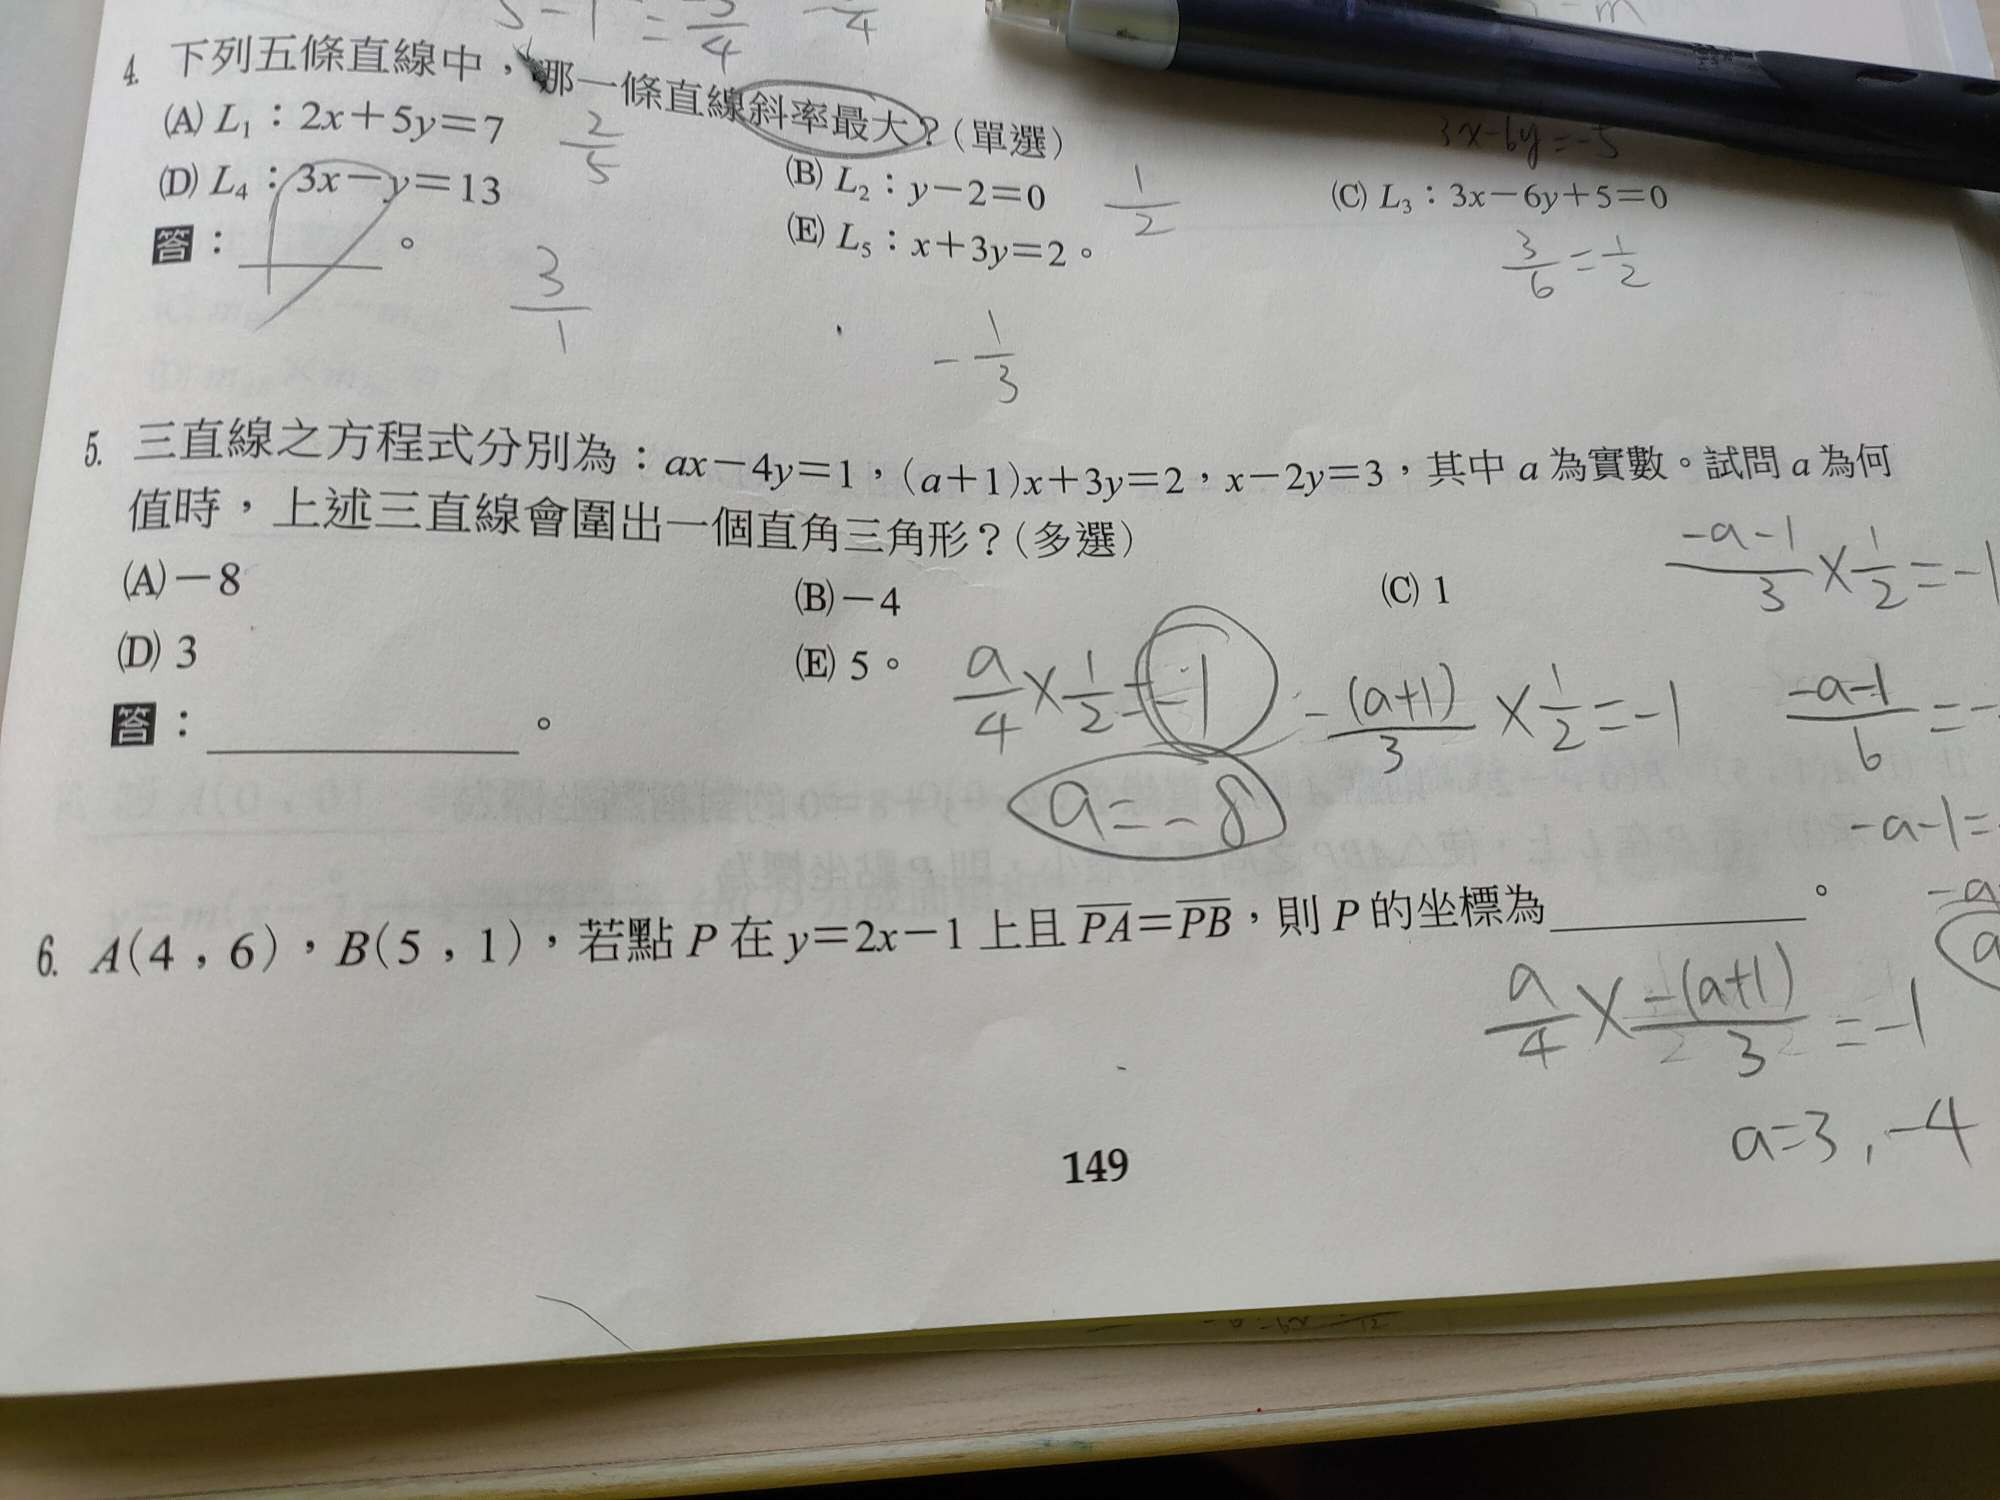 5-1 = -3/4
4. 下列五條直線中，哪一條直線斜率最大？(單選)
(A) L₁：2x+5y=7 2/5
(B) L₂：y-2=0 1/2
3x-6y=-5
(C) L₃：3x-6y+5=0
3/6=1/2
(D) L₄：3x-y=13
3/1
(E) L₅：x+3y=2。
-1/3
答：＿＿＿。
5. 三直線之方程式分別為：ax-4y=1，(a+1)x+3y=2，x-2y=3，其中 a 為實數。試問 a 為何
值時，上述三直線會圍出一個直角三角形？(多選)
(A)-8
(B)-4
(C) 1
(D) 3
(E) 5。
答：＿＿＿。
a/4×1/2=-1
a=-8
-a-1/3×1/2=-1
-(a+1)/3×1/2=-1
-a-1/6=-
-a-1=
-a
a
6. A(4，6)，B(5，1)，若點 P 在 y=2x-1 上且 PA=PB，則 P 的坐標為＿＿＿。
a/4×-(a+1)/3=-1
a=3，-4
149